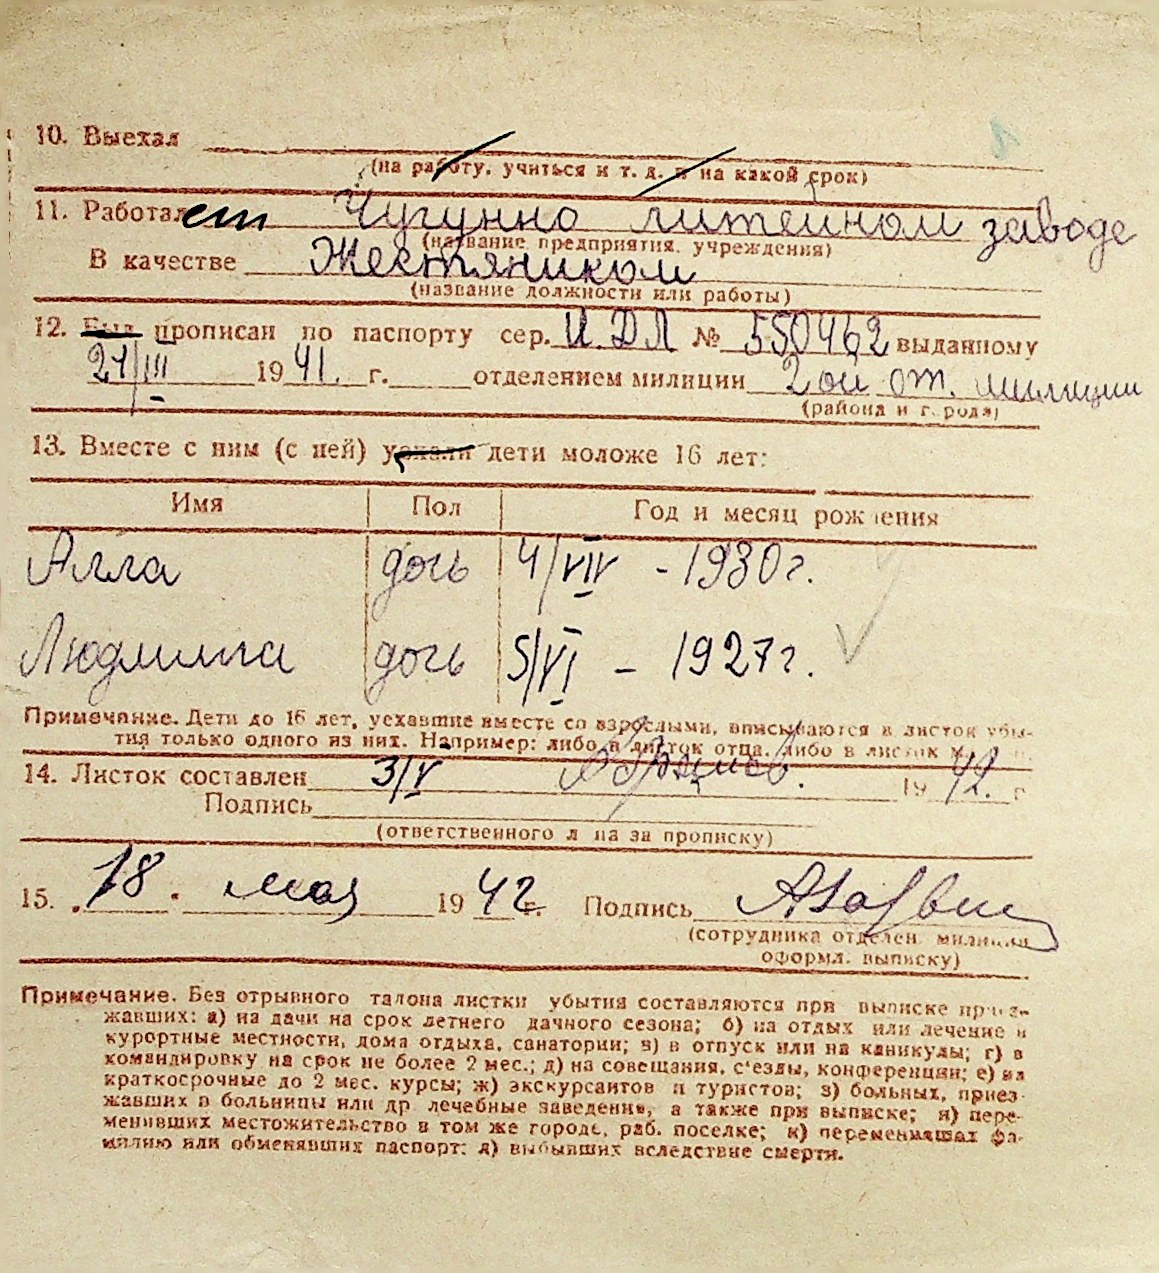 10. Выехал
(на работу, учиться и т. д. и на какой срок)
11. Работает Чугунно литейном заводе
(название предприятия, учреждения)
В качестве Жестяником
(название должности или работы)
12. Был прописан по паспорту сер. И.ДЛ № 550462 выданному
21/III 1941. г. отделением милиции 2ой от. милиции
(района и города)
13. Вместе с ним (с ней) уехали дети моложе 16 лет:
Имя Пол Год и месяц рождения
Алла дочь 4/VIII - 1930 г.
Людмила дочь 5/VI - 1927 г.
Примечание. Дети до 16 лет, уехавшие вместе со взрослыми, вписываются в листок убы-
тия только одного из них. Например: либо в листок отца, либо в листок
14. Листок составлен 3/V 1942. г
Подпись
(ответственного лица за прописку)
15. 18. мая 1942 г. Подпись
(сотрудника отделен. милиции
оформл. выписку)
Примечание. Без отрывного талона листки убытия составляются при выписке приез-
жавших: а) на дачи на срок летнего дачного сезона; б) на отдых или лечение в
курортные местности, дома отдыха, санатории; в) в отпуск или на каникулы; г) в
командировку на срок не более 2 мес.; д) на совещания, с'езды, конференции; е) на
краткосрочные до 2 мес. курсы; ж) экскурсантов и туристов; з) больных, приез-
жавших в больницы или др лечебные заведения, а также при выписке; и) пере-
менивших местожительство в том же городе, раб. поселке; к) переменивших фа-
милию или обменявших паспорт; л) выбывших вследствие смерти.